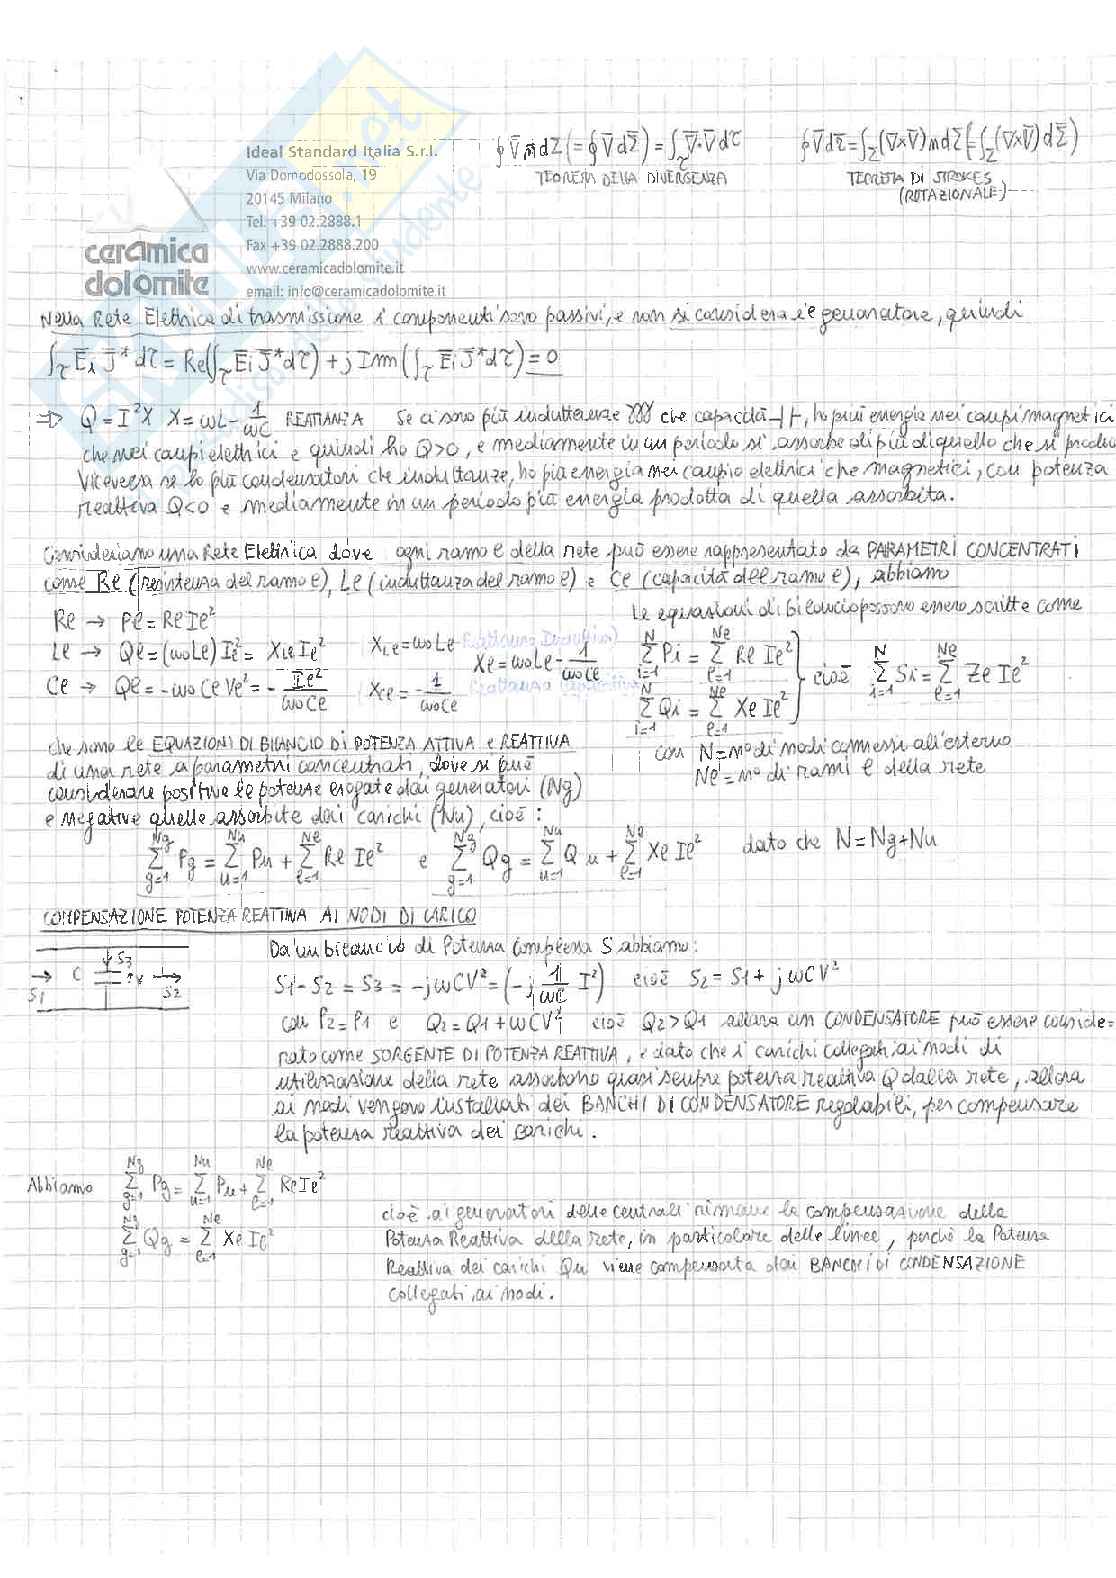 Ideal Standard Italia S.r.l.
Via Domodossola, 19
20145 Milano
Tel. +39 02.2888.1
Fax +39 02.2888.200
www.ceramicadolomite.it
email: info@ceramicadolomite.it
ceramica
dolomite
∮ V̄ n̄ dΣ (= ∮ V̄ dΣ̄) = ∫τ ∇̄·V̄ dτ
TEOREMA DELLA DIVERGENZA
∮ V̄ dΣ̄ = ∫Σ (∇×V̄) n dΣ (= ∫Σ (∇×V̄) dΣ̄)
TEOREMA DI STROKES
(ROTAZIONALE)
Nella Rete Elettrica di trasmissione i componenti sono passivi, e non si considera i e generatore, quindi
∫τ Ēi J̄* dτ = Re(∫τ Ēi J̄* dτ) + j Imm(∫τ Ēi J̄* dτ) = 0
=> Q = I²X X = ωL - 1/ωC REATTANZA Se ci sono più induttanze che capacità ⊣⊢, ho più energia nei campi magnetici
che nei campi elettrici e quindi ho Q>0, e mediamente in un periodo si assorbe di più di quello che si produce
Viceversa se ho più condensatori che induttanze, ho più energia nei campio elettrica che magnetici, con potenza
reattiva Q<0 e mediamente in un periodo più energia prodotta di quella assorbita.
Consideriamo una Rete Elettrica dove ogni ramo e della rete può essere rappresentato da PARAMETRI CONCENTRATI
come Re (resistenza del ramo e), Le (induttanza del ramo e) e Ce (capacità del ramo e), abbiamo
Re → Pe = Re Ie²
Le → Qe = (ωo Le) Ie² = XLe Ie² XLe = ωo Le
Ce → Qe = -ωo Ce Ve² = - Ie²/ωo Ce XCe = - 1/ωo Ce
Xe = ωo Le - 1/ωo Ce
Le equazioni di bilancio possono essere scritte come
∑ᴺᵢ₌₁ Pi = ∑ᴺᵉₑ₌₁ Re Ie²
∑ᴺᵢ₌₁ Qi = ∑ᴺᵉₑ₌₁ Xe Ie² } cioè ∑ᴺᵢ₌₁ Si = ∑ᴺᵉₑ₌₁ Ze Ie²
con N = n° di nodi connessi all'esterno
Ne = n° di rami e della rete
che sono le EQUAZIONI DI BILANCIO DI POTENZA ATTIVA e REATTIVA
di una rete a parametri concentrati, dove si può
considerare positive le potenze erogate dai generatori (Ng)
e negative quelle assorbite dai carichi (Nu), cioè:
∑ᴺᵍg=1 Pg = ∑ᴺᵘu=1 Pu + ∑ᴺᵉe=1 Re Ie² e ∑ᴺᵍg=1 Qg = ∑ᴺᵘu=1 Qu + ∑e=1 Xe Ie² dato che N = Ng + Nu
COMPENSAZIONE POTENZA REATTIVA AI NODI DI CARICO
S1 C S3 V S2
Da un bilancio di Potenza Complessa S abbiamo:
S1 - S2 = S3 = -jωCV² = (-j 1/ωC I²) cioè S2 = S1 + jωCV²
con P2 = P1 e Q2 = Q1 + ωCV² cioè Q2 > Q1 allora un CONDENSATORE può essere conside=
rato come SORGENTE DI POTENZA REATTIVA, e dato che i carichi collegati ai nodi di
utilizzazione della rete assorbono quasi sempre potenza reattiva Q dalla rete, allora
ai nodi vengono installati dei BANCHI DI CONDENSATORE regolabili, per compensare
la potenza reattiva dei carichi.
Abbiamo ∑ᴺᵍg=1 Pg = ∑ᴺᵘu=1 Pu + ∑ᴺᵉe=1 Re Ie²
∑ᴺᵍg=1 Qg = ∑ᴺᵉe=1 Xe Ie²
cioè ai generatori delle centrali rimane la compensazione della
Potenza Reattiva della rete, in particolare delle linee, perchè la Potenza
Reattiva dei carichi Qu viene compensata dai BANCHI DI CONDENSAZIONE
collegati ai nodi.